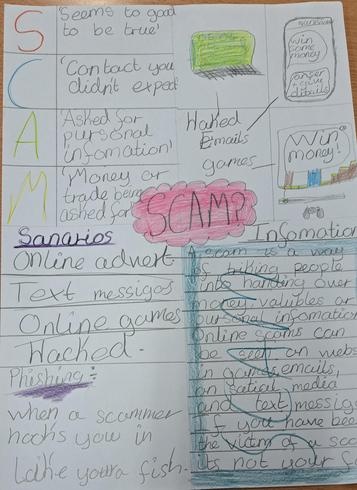 S
'Seems to good
to be true'
C
'Contact you
didn't expect
A
'Asked for
pursonal
infomation'
M
'Money or
trade being
asked for
win
some
money!
details
Haked
Emails
games
Win
money!
SCAMP
Sanarios
Online advert
Text messigos
Online games
Hacked.
Phishing:
when a scammer
hooks you in
Like your a fish.
Infomation
A scam is a way
of triking people
into handing over
money valubles or
pursonal infomation
Online scams can
be seen on webs
in games, emails,
on social media
and text messiges
If you have been
the victim of a sca
its not your fa